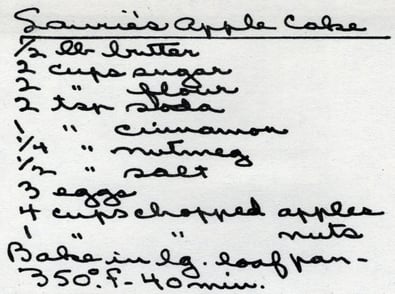 Laurie's Apple Cake
1/2 lb butter
2 cups sugar
2 " flour
2 tsp soda
1 " cinnamon
1/4 " nutmeg
1/2 " salt
3 eggs
4 cups chopped apples
1 " " nuts
Bake in lg. loaf pan -
350°F - 40 min.